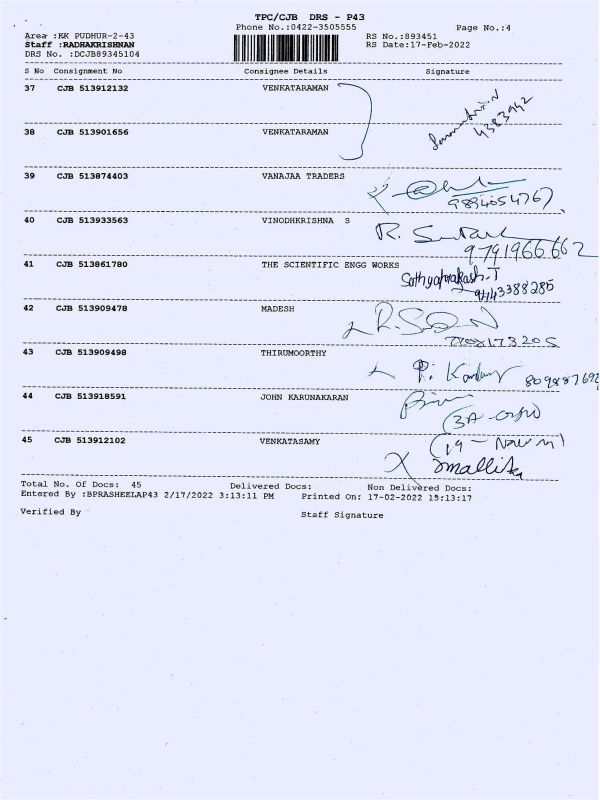 TPC/CJB DRS - P43
Phone No.:0422-3505555 Page No.:4
Area :KK PUDHUR-2-43 RS No.:893451
Staff :RADHAKRISHNAN RS Date:17-Feb-2022
DRS No. :DCJB89345104
S No Consignment No Consignee Details Signature
37 CJB 513912132 VENKATARAMAN
4383942
38 CJB 513901656 VENKATARAMAN
39 CJB 513874403 VANAJAA TRADERS
9894054767
40 CJB 513933563 VINODHKRISHNA S
R.
9791966662
41 CJB 513861780 THE SCIENTIFIC ENGG WORKS
Sathyaprakash.T
42 CJB 513909478 MADESH
43 CJB 513909498 THIRUMOORTHY
P.
44 CJB 513918591 JOHN KARUNAKARAN
45 CJB 513912102 VENKATASAMY
Total No. Of Docs: 45 Delivered Docs: Non Delivered Docs:
Entered By :BPRASHEELAP43 2/17/2022 3:13:11 PM Printed On: 17-02-2022 15:13:17
Verified By Staff Signature